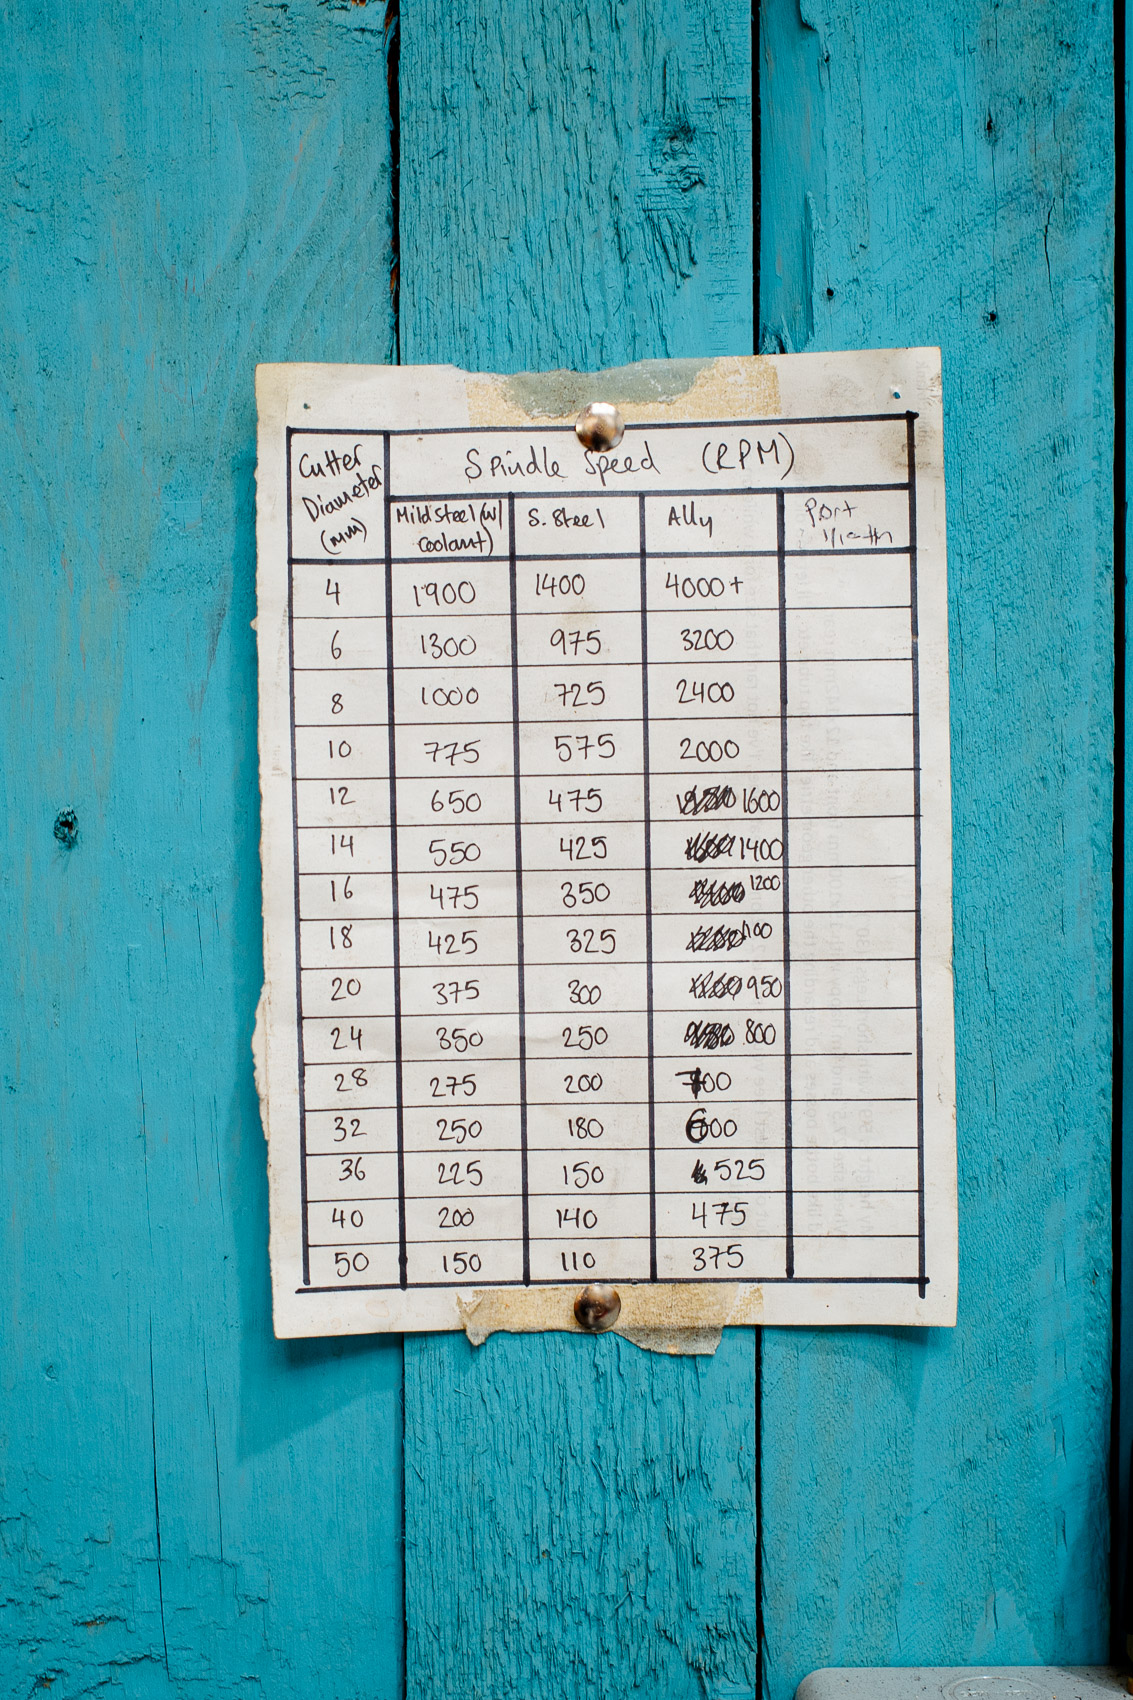 Cutter Diameter (mm)
Spindle Speed (RPM)
Mild steel (w/ coolant)
S. Steel
Ally
4 1900 1400 4000+
6 1300 975 3200
8 1000 725 2400
10 775 575 2000
12 650 475 1600
14 550 425 1400
16 475 350 1200
18 425 325 1100
20 375 300 950
24 350 250 800
28 275 200 700
32 250 180 600
36 225 150 525
40 200 140 475
50 150 110 375